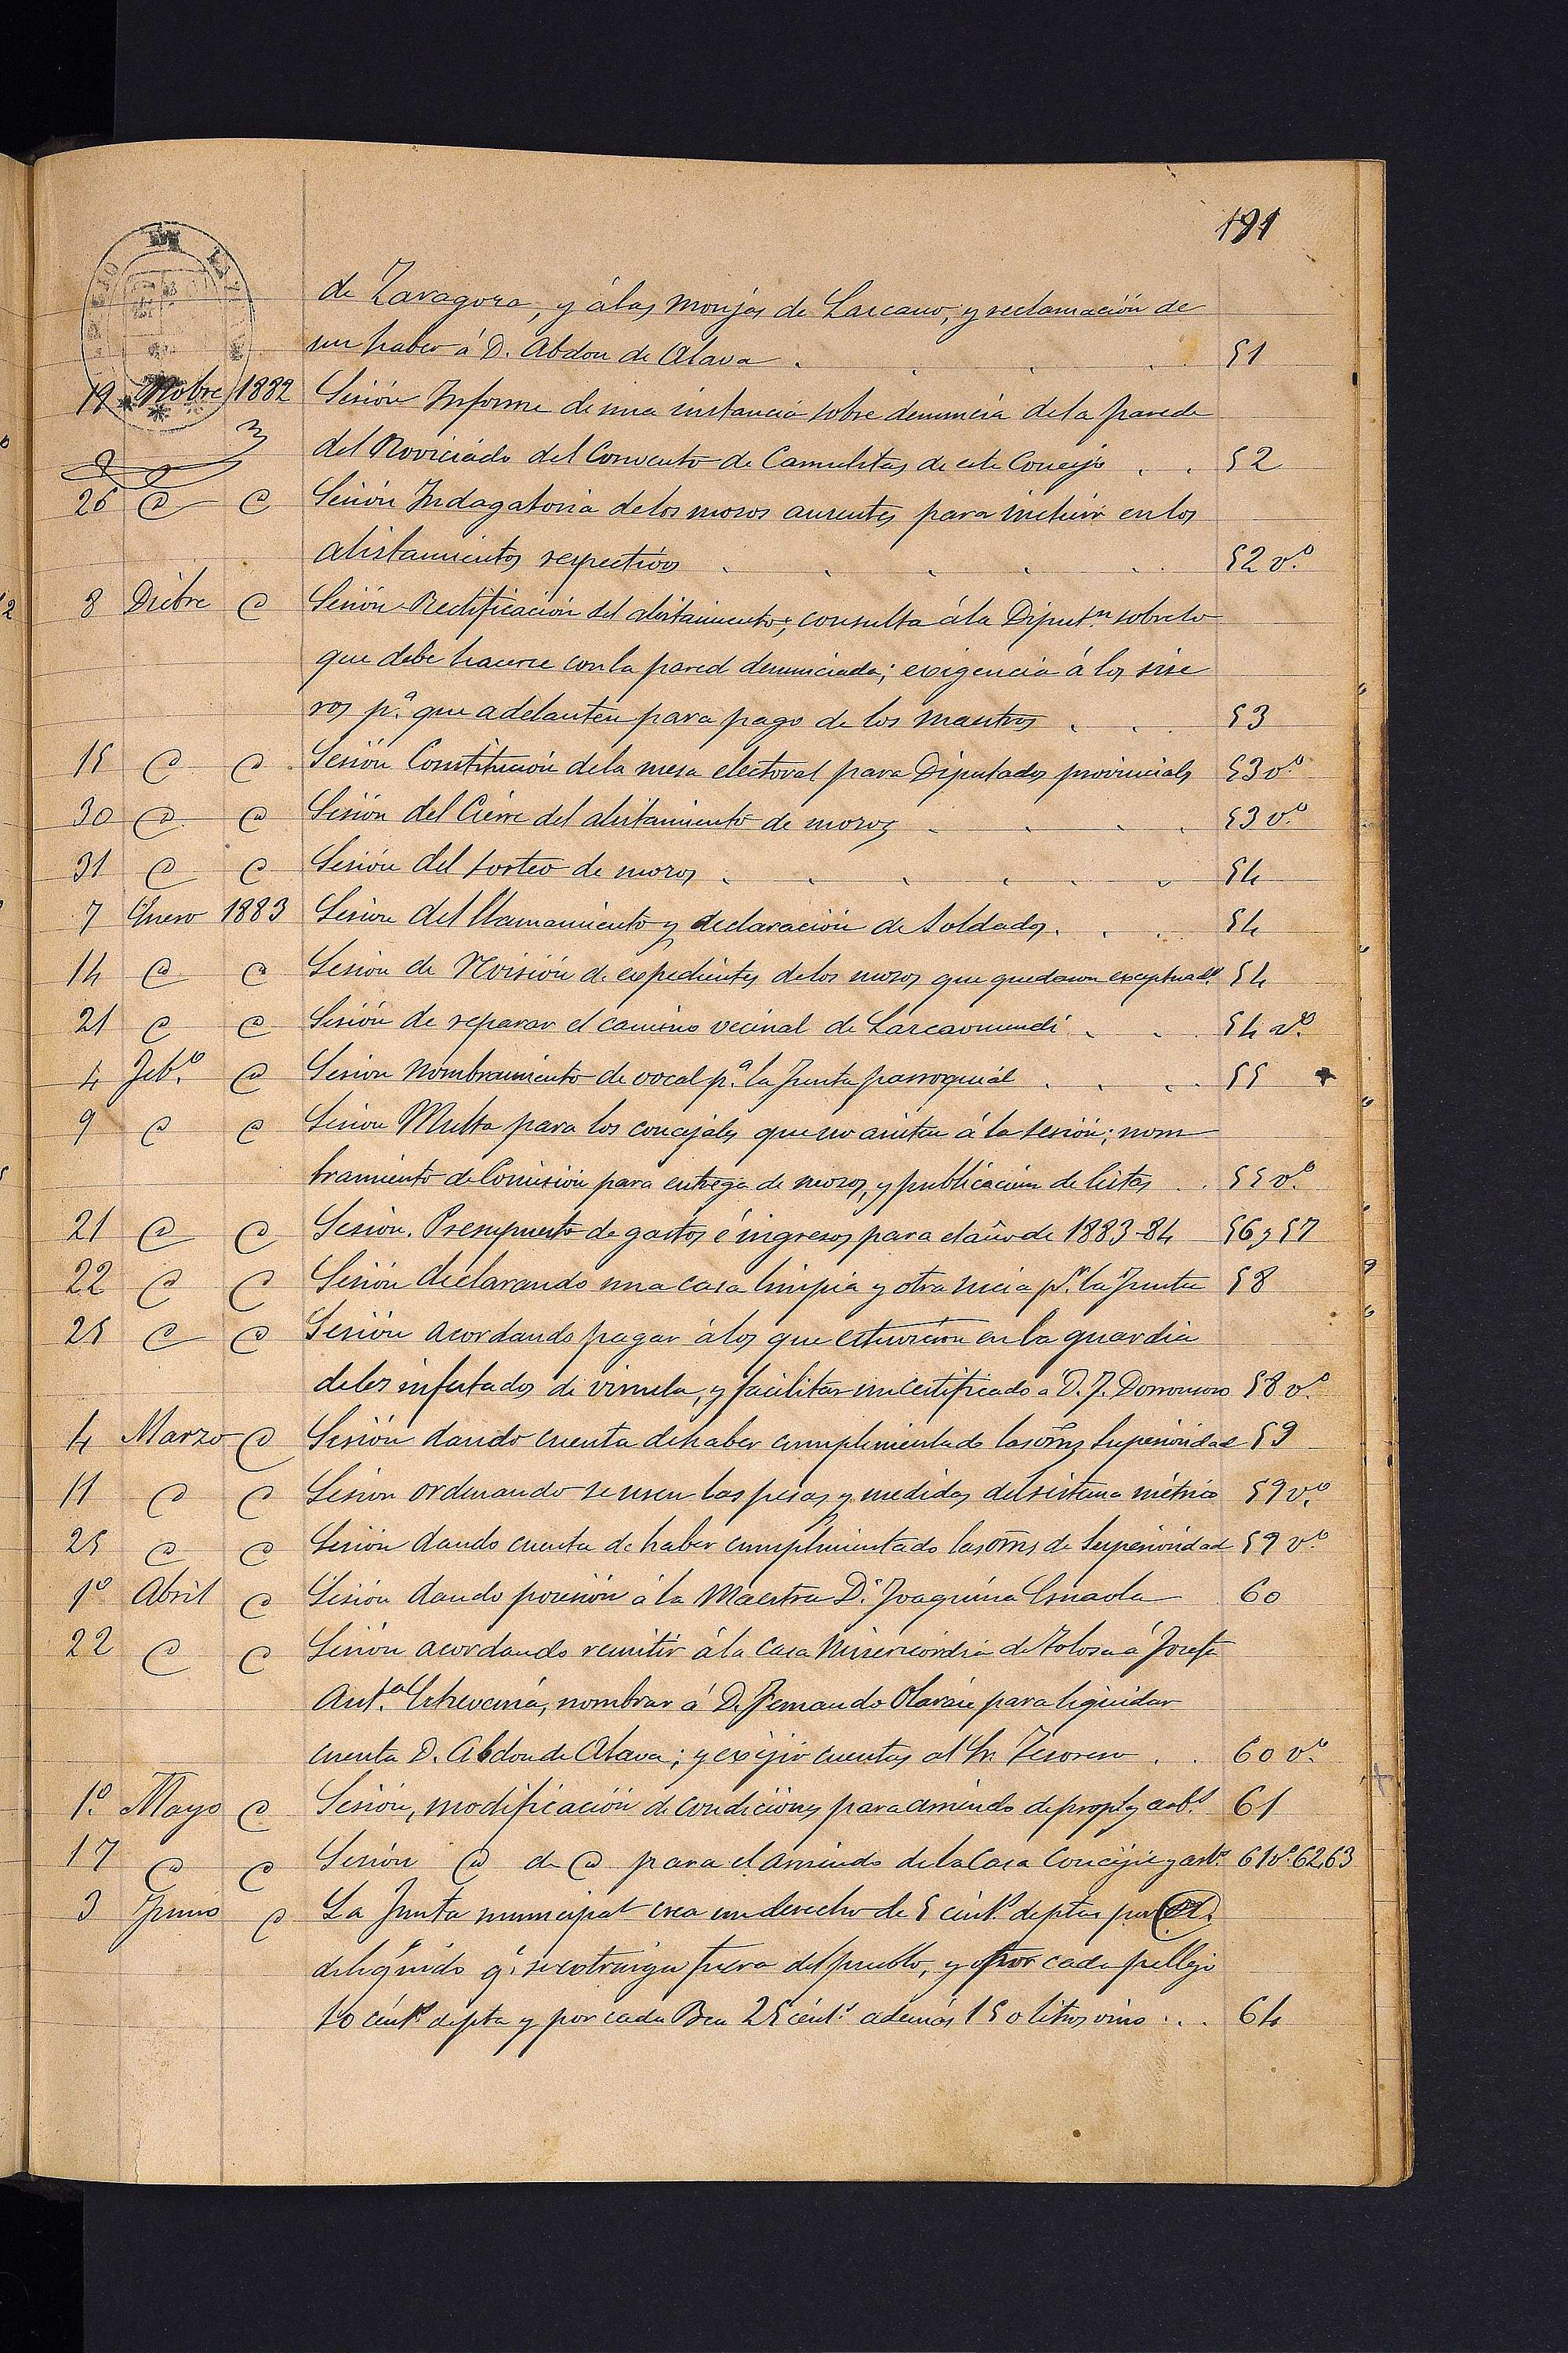 191
de Zaragoza, y á las monjas de Lazcano, y reclamación de
un haber á D. Abdon de Alava . . . . 51
19 Nobre 1882 Sesión Informe de una instancia sobre denuncia de la parede
del Noviciado del Convento de Carmelitas de este Concejo . . 52
26 @ @ Sesión Indagatoria de los mozos ausentes para incluir en los
alistamientos respectivos . . . . . 52 v.º
8 Dicbre @ Sesión Rectificación del alistamiento; consulta á la Diput.n sobre lo
que debe hacerse con la pared denunciada; exigencia á los sise
ros p.a que adelanten para pago de los maestros . . . 53
15 @ @ Sesión Constitución de la mesa electoral para Diputados provinciales 53 v.º
30 @ @ Sesión del Cierre del alistamiento de mozos . . . . 53 v.º
31 @ @ Sesión del sorteo de mozos . . . . . . 54
7 Enero 1883 Sesion del llamamiento y declaración de Soldados . . . 54
14 @ @ Sesion de Revisión de expedientes de los mozos que quedaron exceptuad.s 54
21 @ @ Sesión de reparar el camino vecinal de Lazcaomendi . . . 54 v.º
4 Feb.º @ Sesion Nombramiento de vocal p.a la Junta parroquial . . . 55
9 @ @ Sesion Multa para los concejales que no asisten á la sesión; nom
bramiento de Comisión para entrega de mozos, y publicación de listas . . 55 v.º
21 @ @ Sesion. Presupuesto de gastos é ingresos para el año de 1883-84 56 y 57
22 @ @ Sesión declarando una casa limpia y otra sucia p.r la Junta 58
25 @ @ Sesión acordando pagar á los que estuvieron en la guardia
de los infestados de viruela, y facilitar un certificado á D. J. Dorronsoro 58 v.º
4 Marzo @ Sesión dando cuenta de haber cumplimentado las orns Superioridad 59
11 @ @ Sesion ordenando se usen las pesas y medidas del sistema métrico 59 v.º
25 @ @ Sesión dando cuenta de haber cumplimentado las orns de Superioridad 59 v.º
1º Abril @ Sesión dando posesión á la Maestra D.a Joaquina Esnaola 60
22 @ @ Sesión acordando remitir á la casa Misericordia de Tolosa á Josefa
Ant.a Echeverria, nombrar á D. Fernando Olaran para liquidar
cuenta D. Abdon de Alava; y exijir cuentas al Sr. Tesorero . . 60 v.º
1.º Mayo @ Sesión, modificación de condiciones para arriendo de prop.s y arb.s 61
17 @ @ Sesión @ de @ para el arriendo de la Casa Concejil y arb.s 61 v.º 62, 63
3 Junio @ La Junta municipal crea un derecho de 5 cént.s de ptas por
de líquido q.e se extraiga fuera del pueblo, y por cada pellejo
10 cént.s de pta y por cada 25 cént.s además 150 litros vino . . . 64